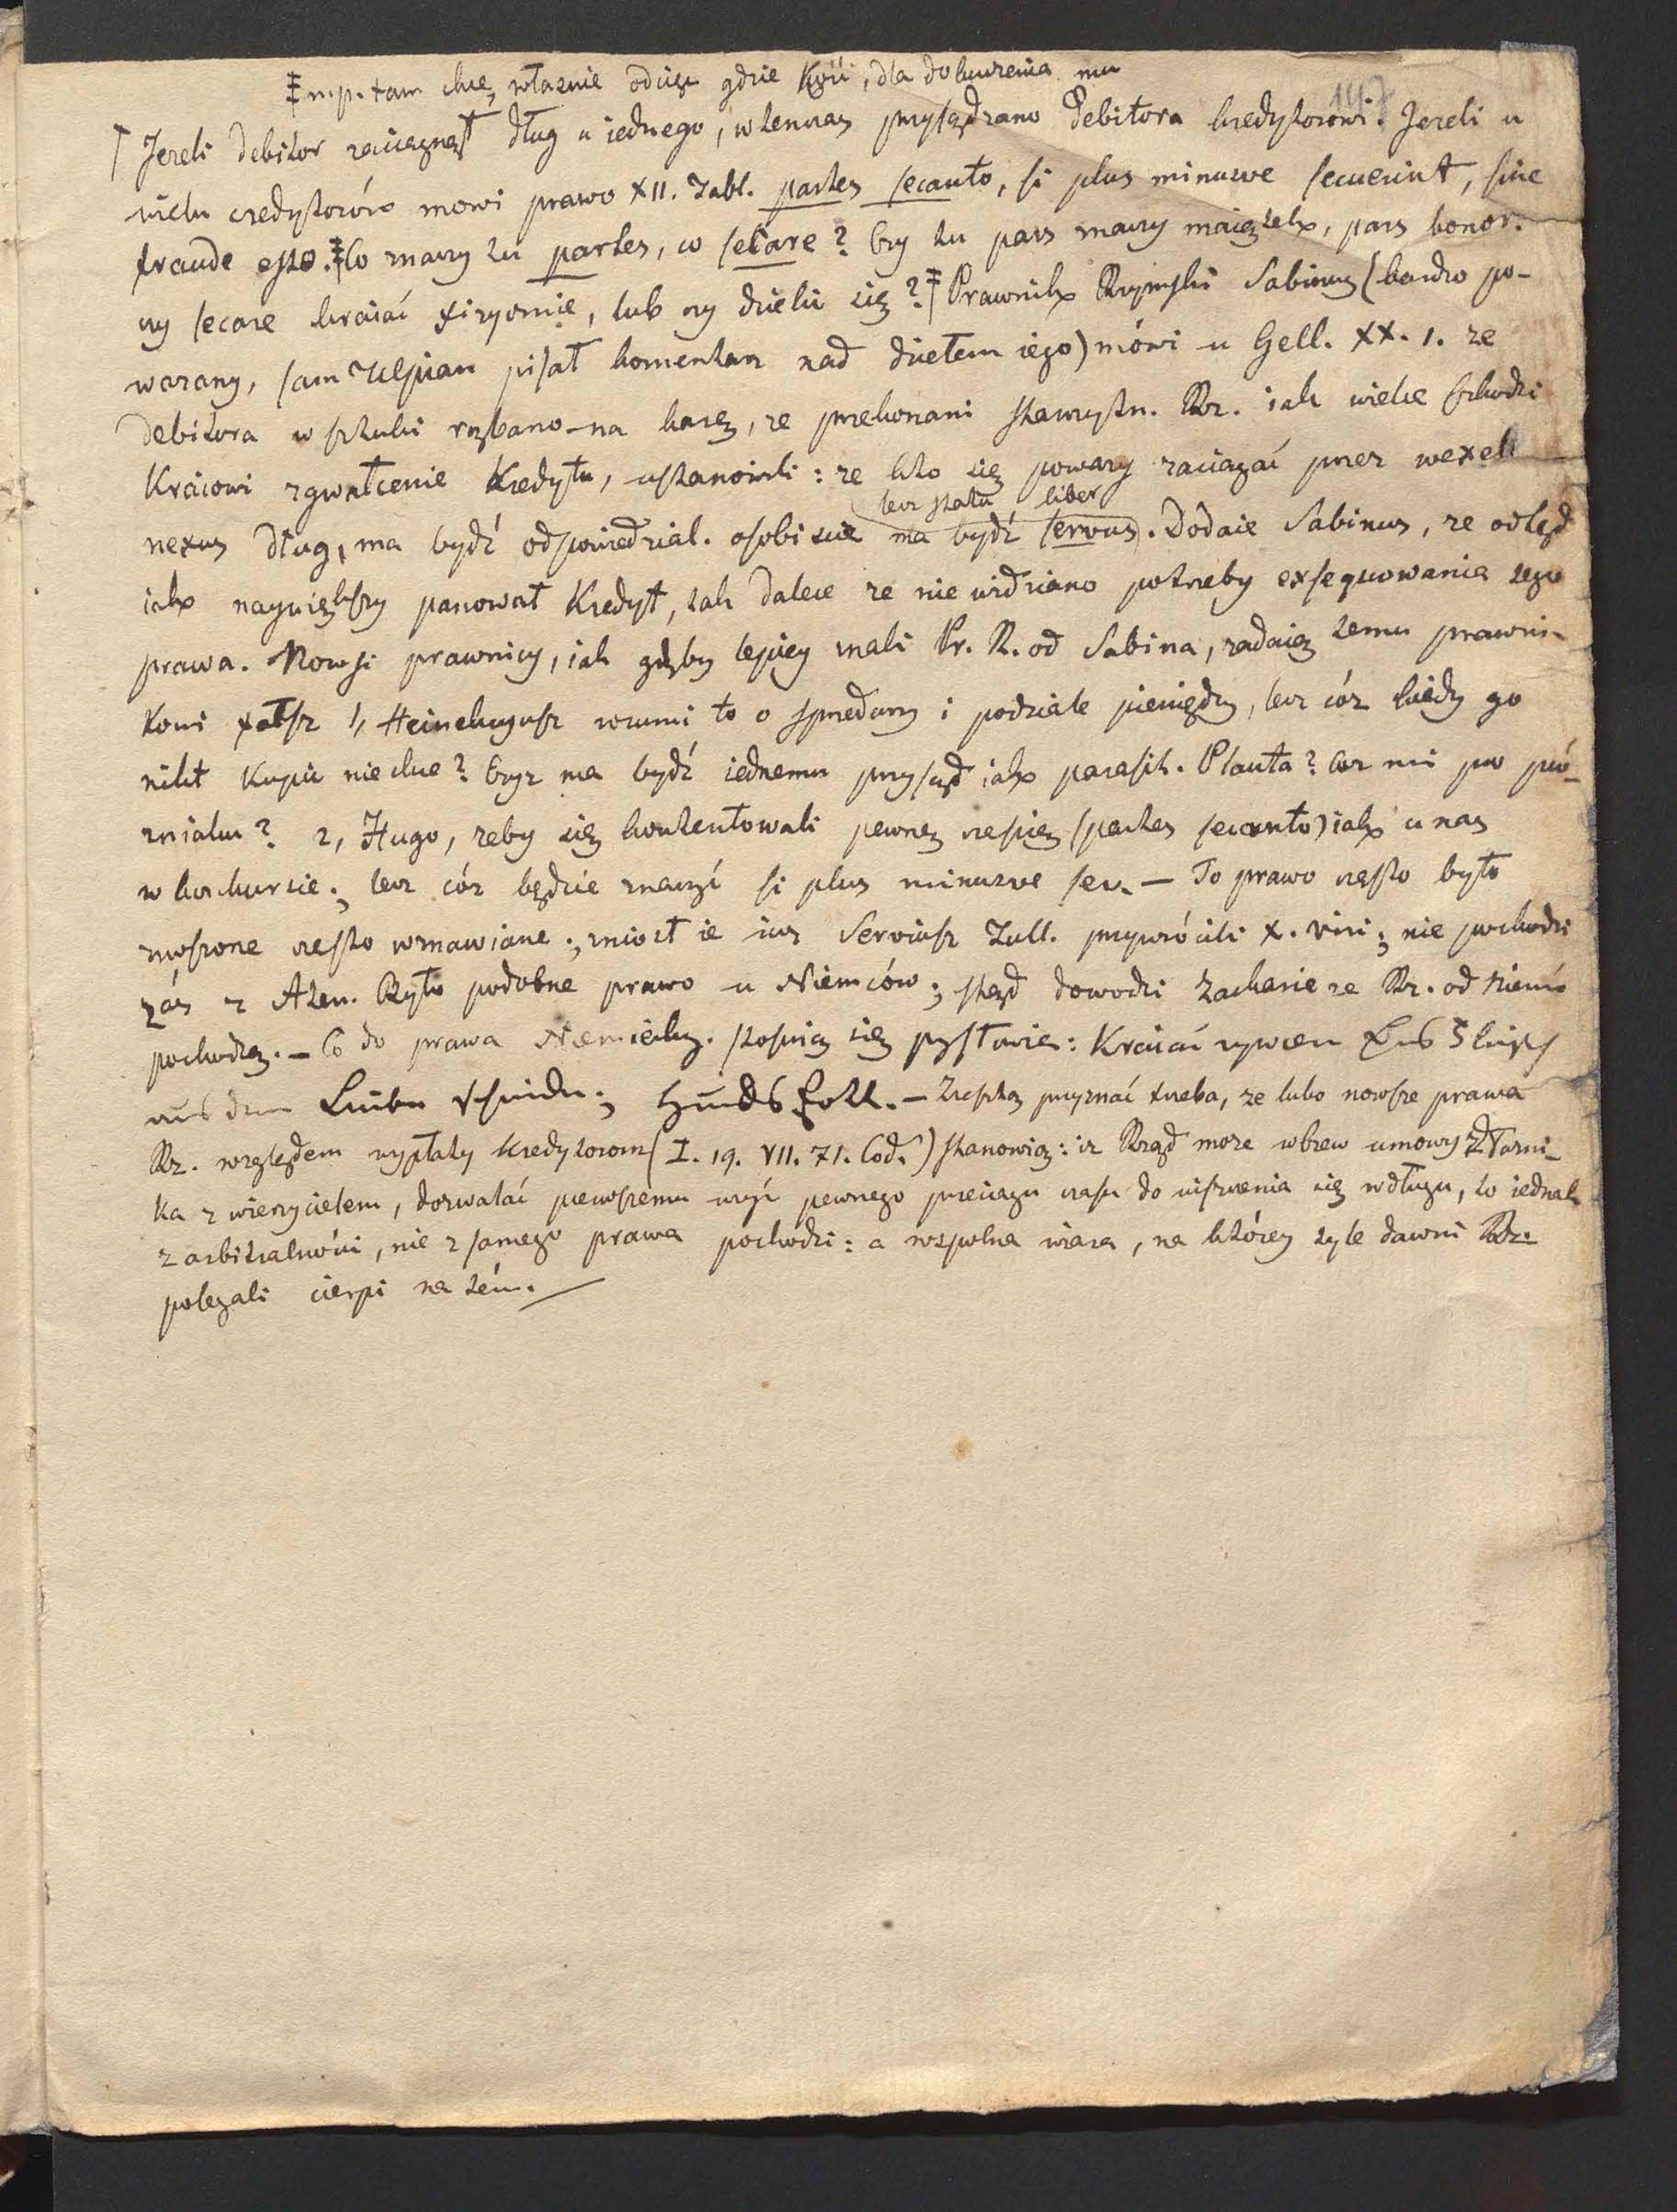 ‡ np. tam chcę właśnie odciąć gdzie Kość, dla dokuczenia mu
147
Jezeli debitor zaciągnął dług u iednego, wtenczas przysądzano debitora kredytorowi. Jezeli u
wielu credytorów mowi prawo XII. Tabl. partes secanto, si plus minusve secuerint, sine
fraude esto. ‡ Co znaczy tu partes, co secare? Czy tu pars znaczy maiątek, pars bonor.
czy secare kraiać fizycznie, lub czy dzielić się? ‡ Prawnik Rzymski Sabinus (bardzo po-
wazany, sam Ulpian pisał komentarz nad dziełem iego) mówi u Gell. XX. 1. ze
debitora w sztuki rąbano na karę, ze przekonani starożytn. Rz. iak wielce szkodzi
Kraiowi zgwałcenie Kredytu, ustanowili: ze kto się poważy zaciągać przez wexel
lecz statu liber
nexus dług, ma bydź odpowiedzial. osobiscie ma bydź servus. Dodaie Sabinus, ze odtąd
iak naywiększy panował Kredyt, tak dalece ze nie widziano potrzeby exsequowania tego
prawa. Nowsi prawnicy, iak gdyby lepiey znali Pr. R. od Sabina, zadaią temu prawni-
kowi fałsz 1, Heinekcyusz rozumi to o sprzedarzy i podziale pieniędzy, lecz cóz kiedy go
nikt Kupić nie chce? Czyz ma bydź iednemu przysąd iak parasit. Plauta? Coz mi po pó-
zniaku? 2, Hugo, zeby się kontentowali pewną częścią (partes secanto) iak u nas
w konkursie; lecz cóz będzie znaczyć si plus minusve sec. — To prawo często było
znoszone często wznawiane; zniosł ie iuz Serviusz Tull. przywrócili X. viri; nie pochodzi
zaś z Aten. Było podobne prawo u Niemców; skąd dowodzi Zacharie ze Rz. od Niemc
pochodzą. — Co do prawa Niemieckg. stosuią się przysłowia: Kraiać zywcem
Hundsfott. — Zresztą przyznać trzeba, ze lubo nowsze prawa
Rz. względem wypłaty kredytorom (I. 19. VII. 71. Cod.) stanowią: iz Rząd moze wbrew umowy Dłużni-
ka z wierzycielem, dozwalać pierwszemu uzyć pewnego przeciągu czasu do uiszczenia się w długu, to iednak
z arbitralności, nie z samego prawa pochodzi: a wspolna wiara, na którey tyle dawni Rz.
polegali cierpi na tém.